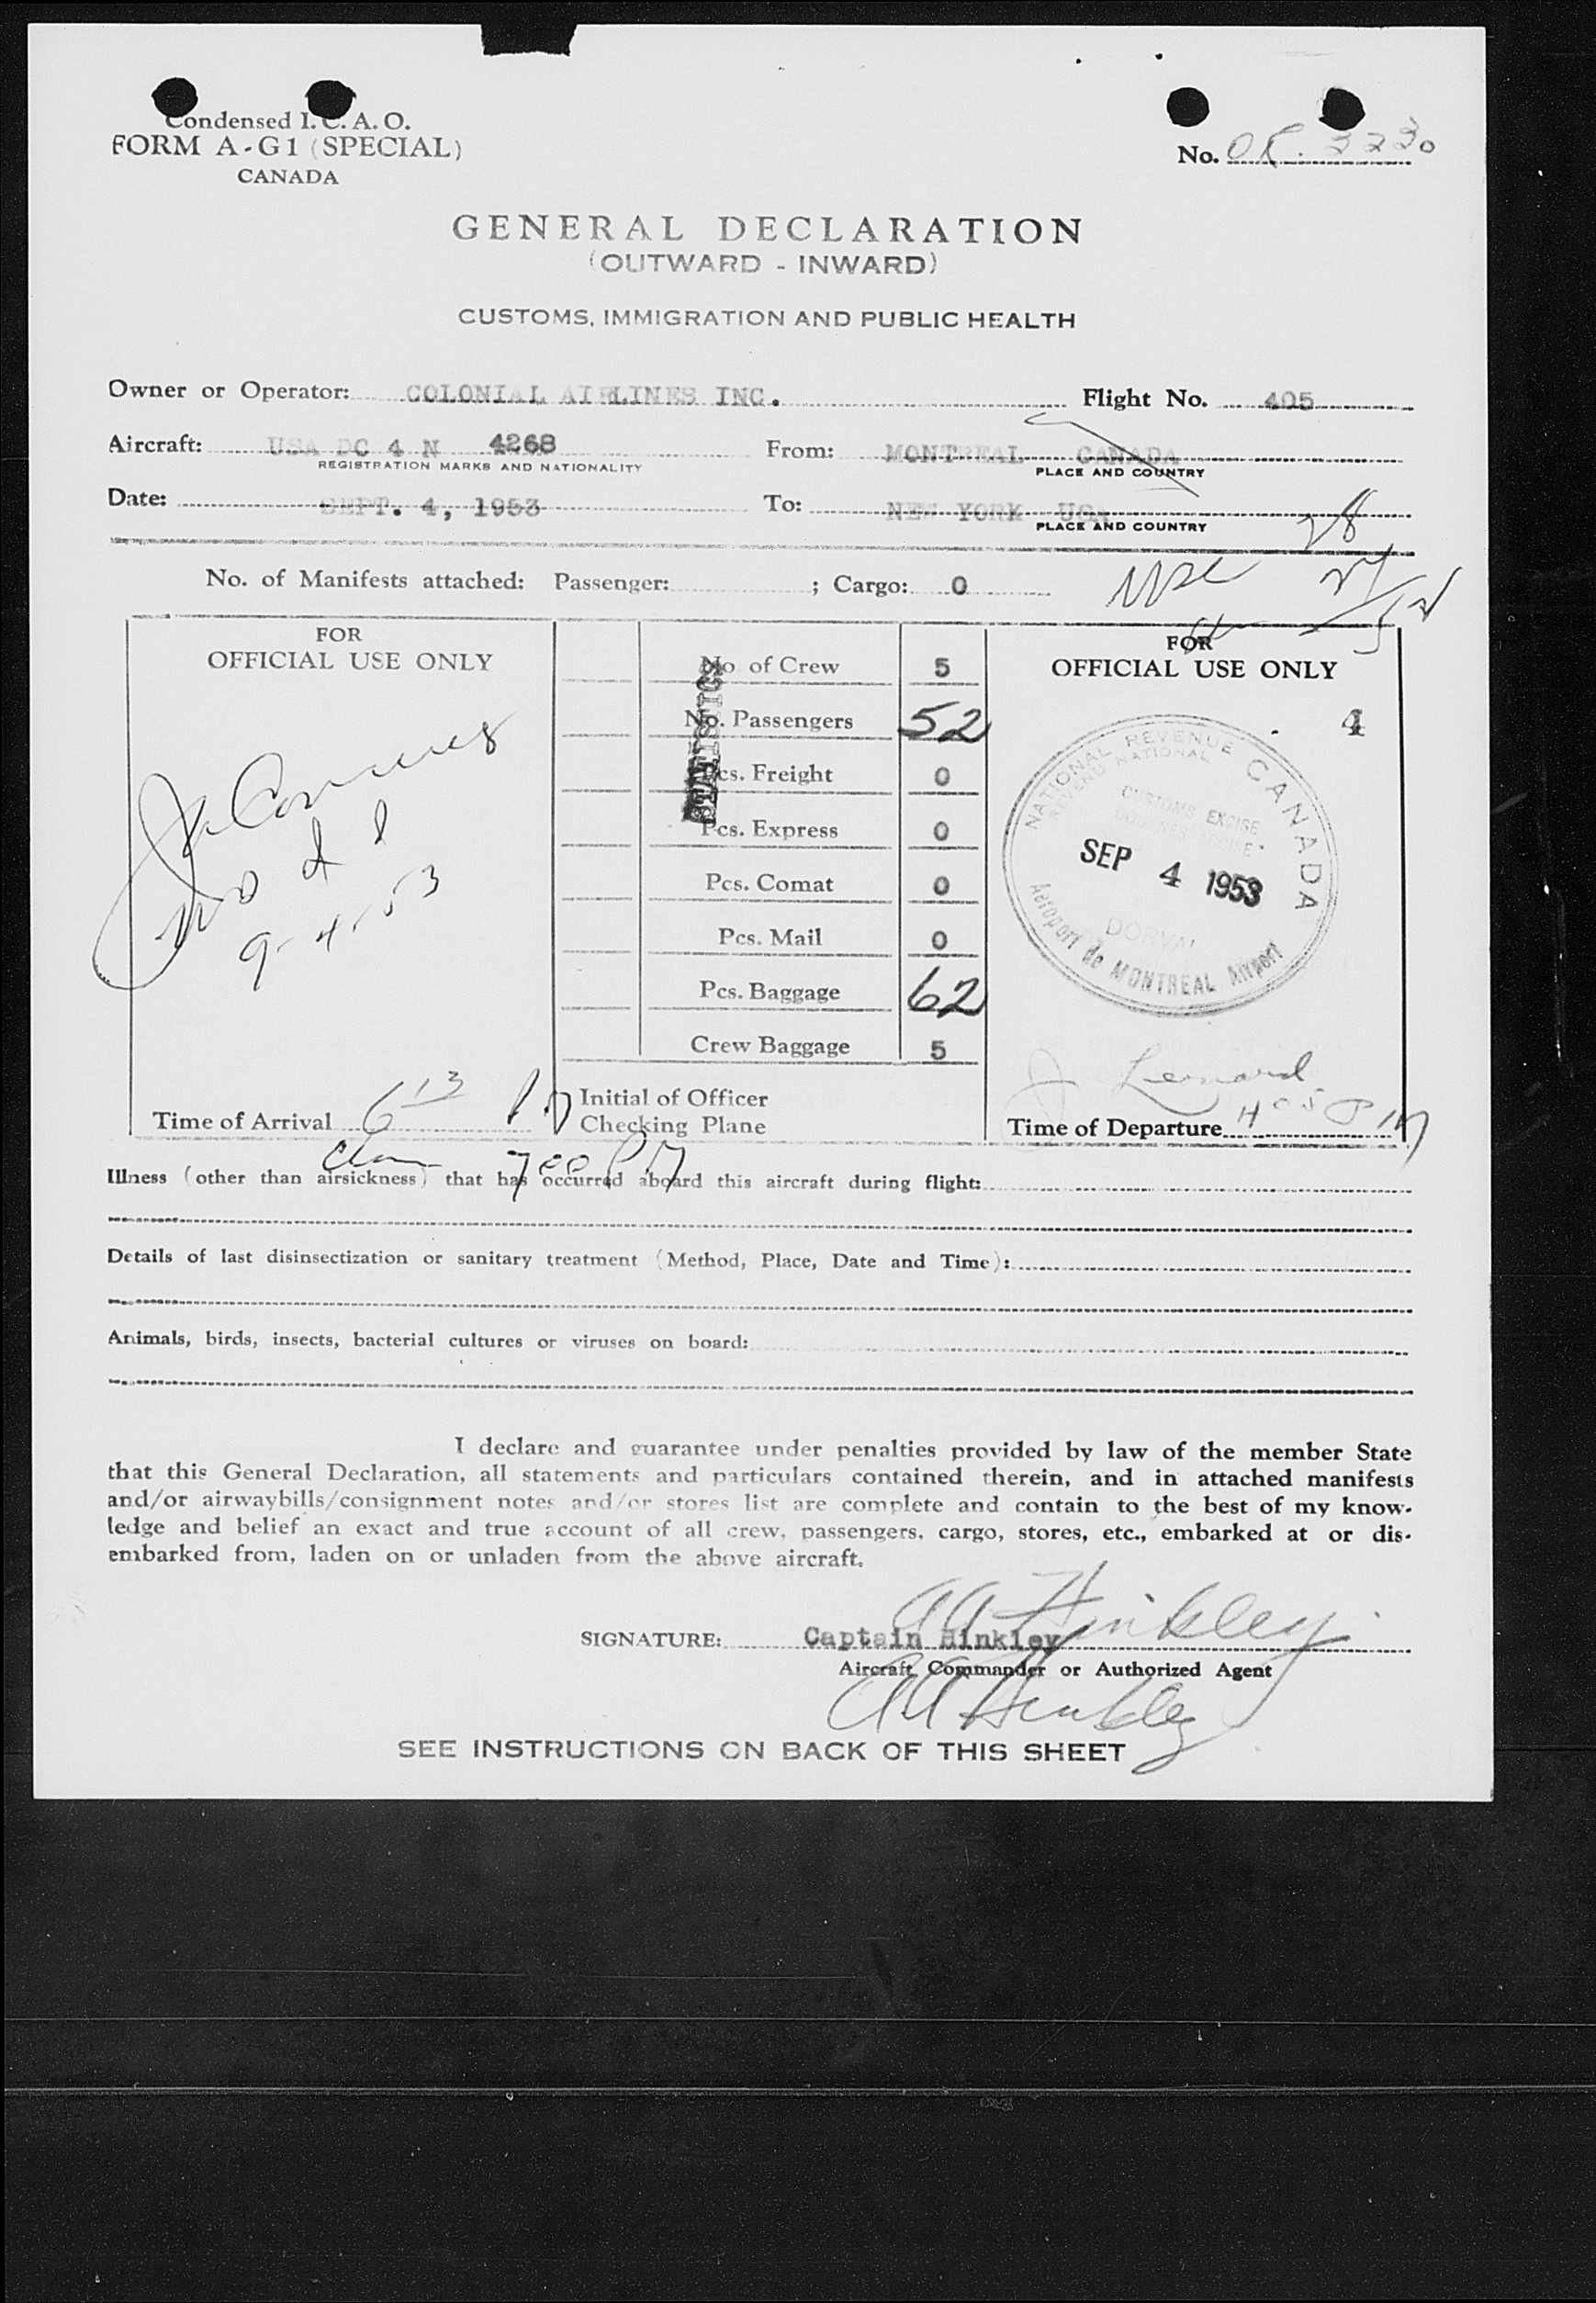 Condensed I. C. A. O.
FORM A-G1 (SPECIAL)
CANADA
No. 3230
GENERAL DECLARATION
(OUTWARD - INWARD)
CUSTOMS, IMMIGRATION AND PUBLIC HEALTH
Owner or Operator: COLONIAL AIRLINES INC. Flight No. 405
Aircraft: USA DC 4 N 4268 From: MONTREAL CANADA
REGISTRATION MARKS AND NATIONALITY PLACE AND COUNTRY
Date: SEPT. 4, 1953 To: NEW YORK USA
PLACE AND COUNTRY
28
No. of Manifests attached: Passenger: ; Cargo: 0
24
52
FOR
OFFICIAL USE ONLY
9-4-53
Time of Arrival 6 13 P M
No. of Crew 5
No. Passengers 52
Pcs. Freight 0
Pcs. Express 0
Pcs. Comat 0
Pcs. Mail 0
Pcs. Baggage 62
Crew Baggage 5
STATISTICS
Initial of Officer
Checking Plane
FOR
OFFICIAL USE ONLY
4
NATIONAL REVENUE CANADA
REVENU NATIONAL
CUSTOMS EXCISE
SEP 4 1953
DORVAL
Aeroport de MONTREAL Airport
J Leonard
Time of Departure 4 05 P M
700 PM
Illness (other than airsickness) that has occurred aboard this aircraft during flight:
Details of last disinsectization or sanitary treatment (Method, Place, Date and Time):
Animals, birds, insects, bacterial cultures or viruses on board:
I declare and guarantee under penalties provided by law of the member State
that this General Declaration, all statements and particulars contained therein, and in attached manifests
and/or airwaybills/consignment notes and/or stores list are complete and contain to the best of my know-
ledge and belief an exact and true account of all crew, passengers, cargo, stores, etc., embarked at or dis-
embarked from, laden on or unladen from the above aircraft.
AA Hinkley
SIGNATURE: Captain Hinkley
Aircraft Commander or Authorized Agent
AA Hinkley
SEE INSTRUCTIONS ON BACK OF THIS SHEET